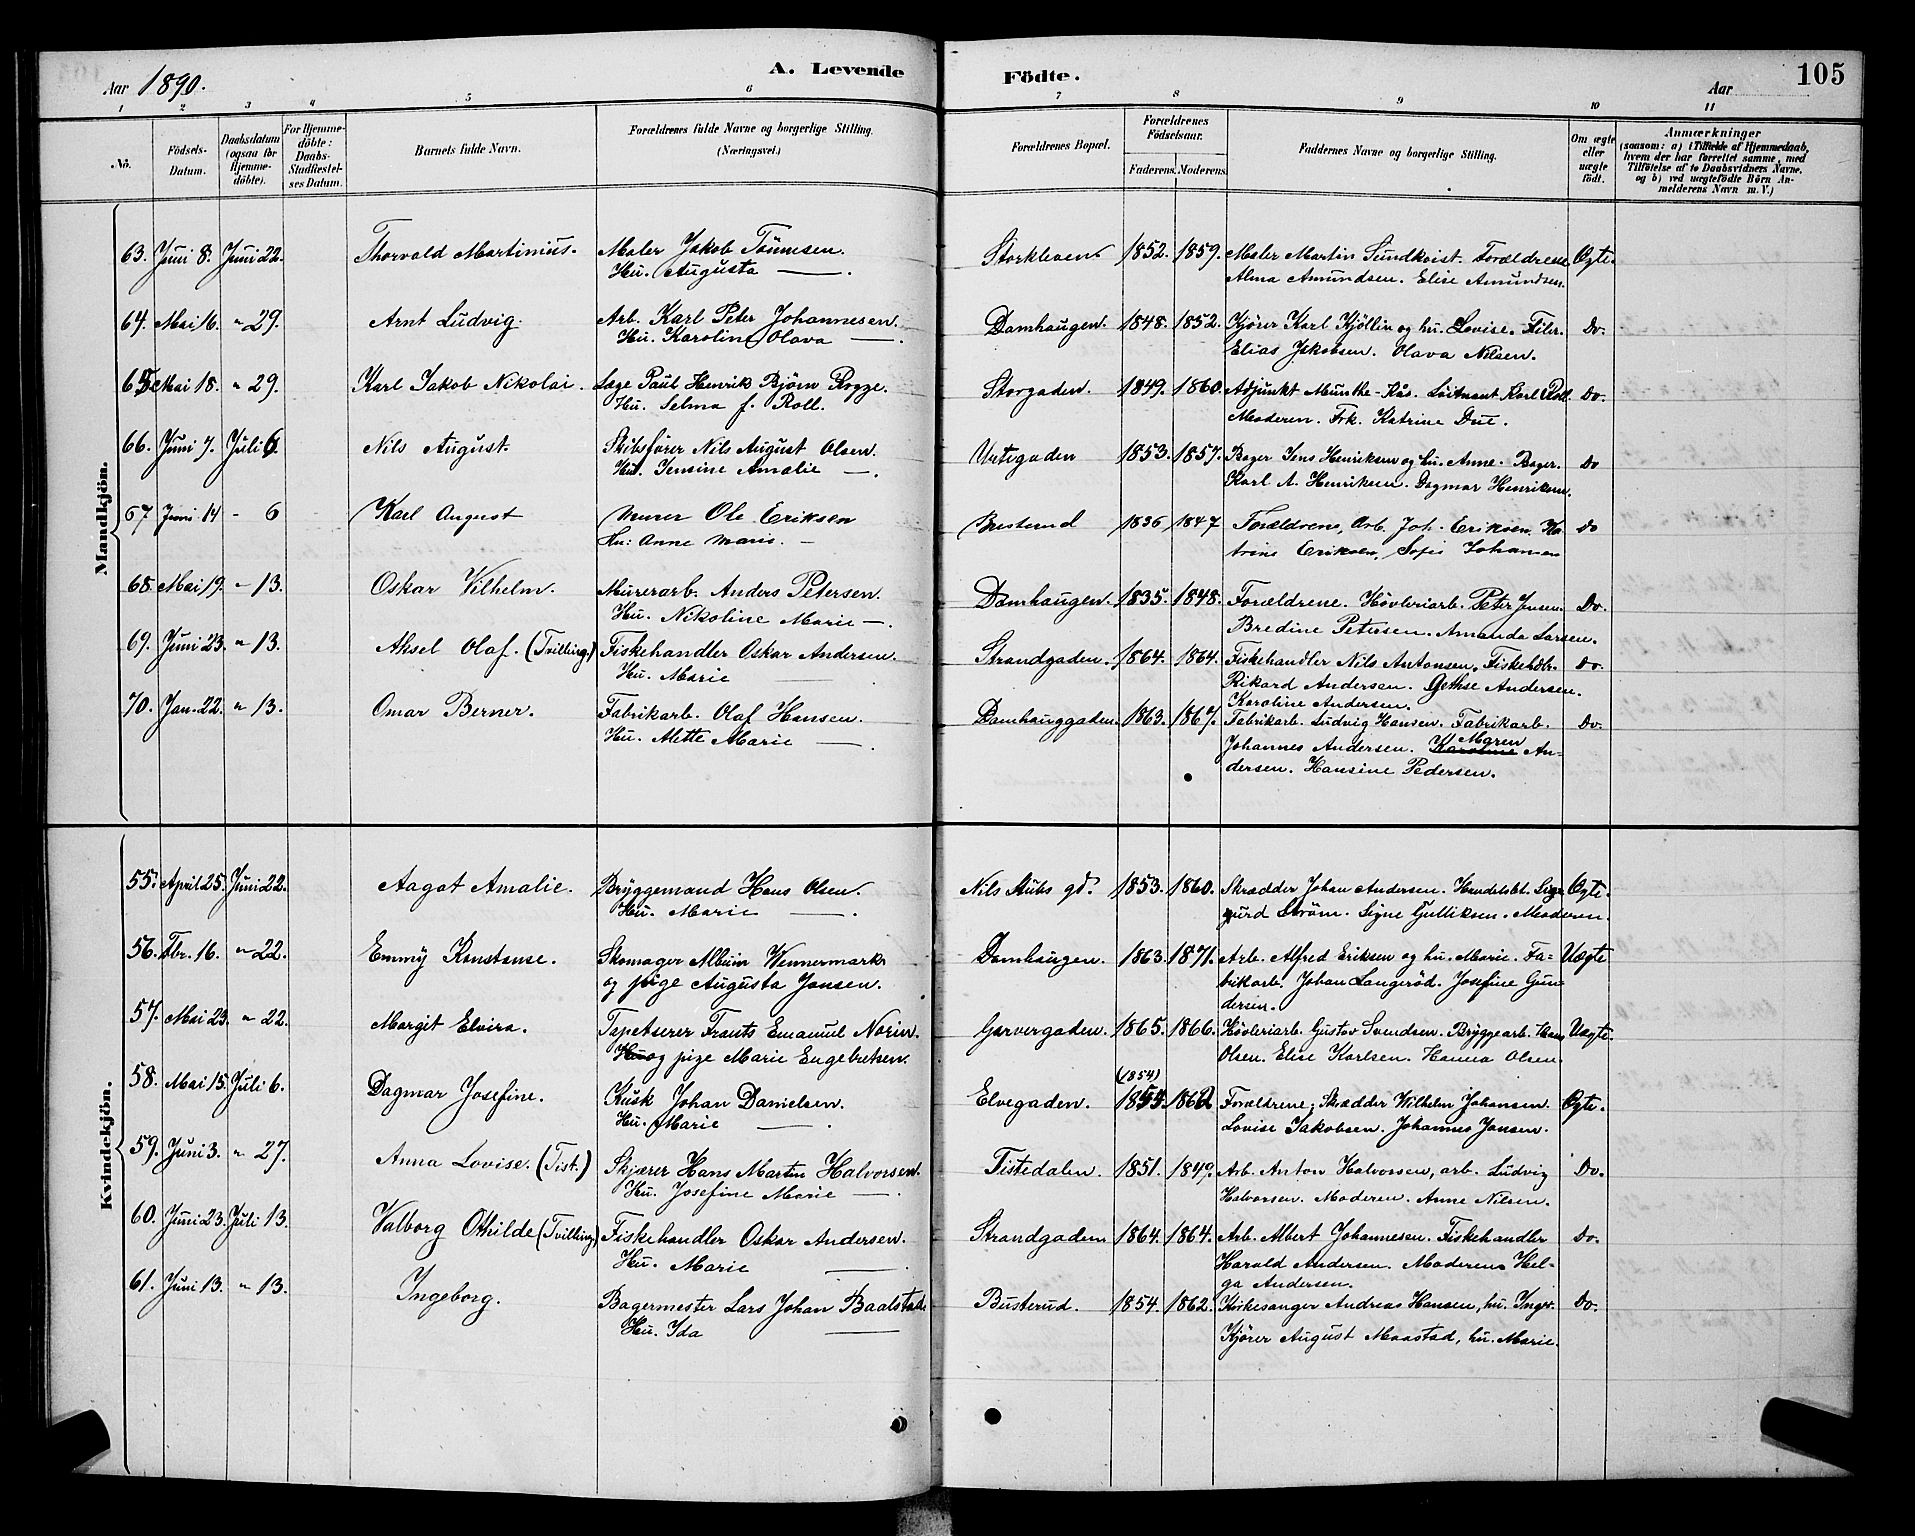 Aar 1890.
A. Levende
Födte.
Aar
105
1 2 3 4 5 6 7 8 9 10 11
No.
Födsels-Datum.
Daabsdatum (ogsaa for Hjemme-döbte).
For Hjemme-döbte: Daabs-Stadfæstel-ses Datum.
Barnets fulde Navn.
Forældrenes fulde Navne og borgerlige Stilling. (Næringsvei.)
Forældrenes Bopæl.
Forældrenes Födselsaar.
Faderens. Moderens.
Faddernes Navne og borgerlige Stilling.
Om ægte eller uægte födt.
Anmærkninger (saasom: a) i Tilfælde af Hjemmedaab, hvem der har forrettet samme, med Tilföielse af to Daabsvidners Navne, og b) ved uægtefödte Börn An-melderens Navn m. V.)
Mandkjön.
63. Juni 8. Juni 22. Thorvald Martinius. Maler Jakob Tömmesen. Storkleven 1852. 1859. Maler Martin Sundkvist. Forældrene Ægte.
Hu. Augusta — . Alma Amundsen. Elise Amundsen.
64. Mai 16. " 29. Arnt Ludvig. Arb. Karl Peter Johannesen. Damhaugen. 1848. 1852. Kjører Karl Kjöllin og hu. Lovise. Filer. Do.
Hu. Karoline Olava — . Elias Jakobsen. Olava Nilsen.
65 Mai 18. " 29. Karl Jakob Nikolai. Læge Paul Henrik Bjørn Rogge. Storgaden. 1849. 1860. Adjunkt Munthe-Kås. Løitnant Karl Roll. Do.
Hu. Selma f. Roll. Moderen. Frk. Katrine Due.
66. Juni 7. Juli 6. Nils August. Skibsfører Nils August Olsen. Urtegaden 1853. 1857. Bager Jens Henriksen og hu. Anne. Bager. Do
Hu. Jensine Amalie — . Karl A. Henriksen. Dagmar Henriksen.
67 Juni 14 - 6 Karl August Murer Ole Eriksen Busterud 1836 1847 Forældrene, Arb. Joh. Eriksen, Ka- Do
Hu: Anne Marie. — trine Eriksen, Sofie Johansen
68. Mai 19. " 13. Oskar Vilhelm. Murerarb. Anders Petersen. Damhaugen. 1835. 1848. Forældrene. Høvleriarb. Peter Jensen. Do.
Hu. Nikoline Marie — . Bredine Petersen. Amanda Larsen.
69. Juni 23. " 13. Aksel Olaf. (Tvilling.) Fiskehandler Oskar Andersen. Strandgaden. 1864. 1864. Fiskehandler Nils Antonsen. Fiskehdlr. Do.
Hu. Marie — Rikard Andersen. Gethse Andersen.
Karoline Andersen.
70. Jan. 22. " 13. Omar Berner. Fabrikarb. Olaf Hansen. Damhauggaden. 1863. 1867. Fabrikarb. Ludvig Hansen. Fabrikarb. Do.
Hu. Mette Marie — . Johannes Andersen. Karoline Maren An-
dersen. Hansine Pedersen.
Kvindekjön.
55. April 25. Juni 22. Aagot Amalie. Bryggemand Hans Olsen. Nils Stubs gd. 1853. 1860. Skrædder Johan Andersen. Handelsbt. Sig- Ægte.
Hu. Marie — . gurd Strøm. Signe Gulliksen. Moderen.
56. Fbr. 16. " 22. Emmy Konstanse. Skomager Albuin Wennermark Damhaugen. 1863. 1871. Arb. Alfred Eriksen og hu. Marie. Fa- Uægte
og pige Augusta Jansen. brikarb. Johan Langerød. Josefine Gun-
dersen.
57. Mai 23. " 22. Margit Elvira. Tapetserer Frants Emanuel Norin Garvergaden. 1865. 1866. Høvleriarb. Gustav Svendsen. Bryggearb. Hans Uægte.
Hu og pige Marie Engebretsen. Olsen. Elise Karlsen. Hanna Olsen.
58. Mai 15. Juli 6. Dagmar Josefine. Kusk Johan Danielsen. Elvegaden. (1854) 1854. 1862 Forældrene; Skrædder Wilhelm Johansen. Ægte.
Hu. Marie — . Lovise Jakobsen. Johannes Jansen.
59. Juni 3. " 27. Anna Lovise. (Tist.) Skjærer Hans Martin Halvorsen. Tistedalen. 1851. 1849. Arb. Anton Halvorsen, arb. Ludvig Do.
Hu. Josefine Marie — . Halvorsen. Moderen. Anne Nilsen.
60. Juni 23. Juli 13. Valborg Othilde (Tvilling) Fiskehandler Oskar Andersen. Strandgaden 1864. 1864. Arb. Albert Johannesen. Fiskehandler Do.
Hu. Marie — Harald Andersen. Moderen. Hel-
ga Andersen.
61. Juni 13. " 13. Ingeborg. Bagermester Lars Johan Baalstad Busterud. 1854. 1862. Kirkesanger Andreas Hansen, hu. Inger. Do.
Hu. Ida — Kjører August Maastad, hu. Marie.